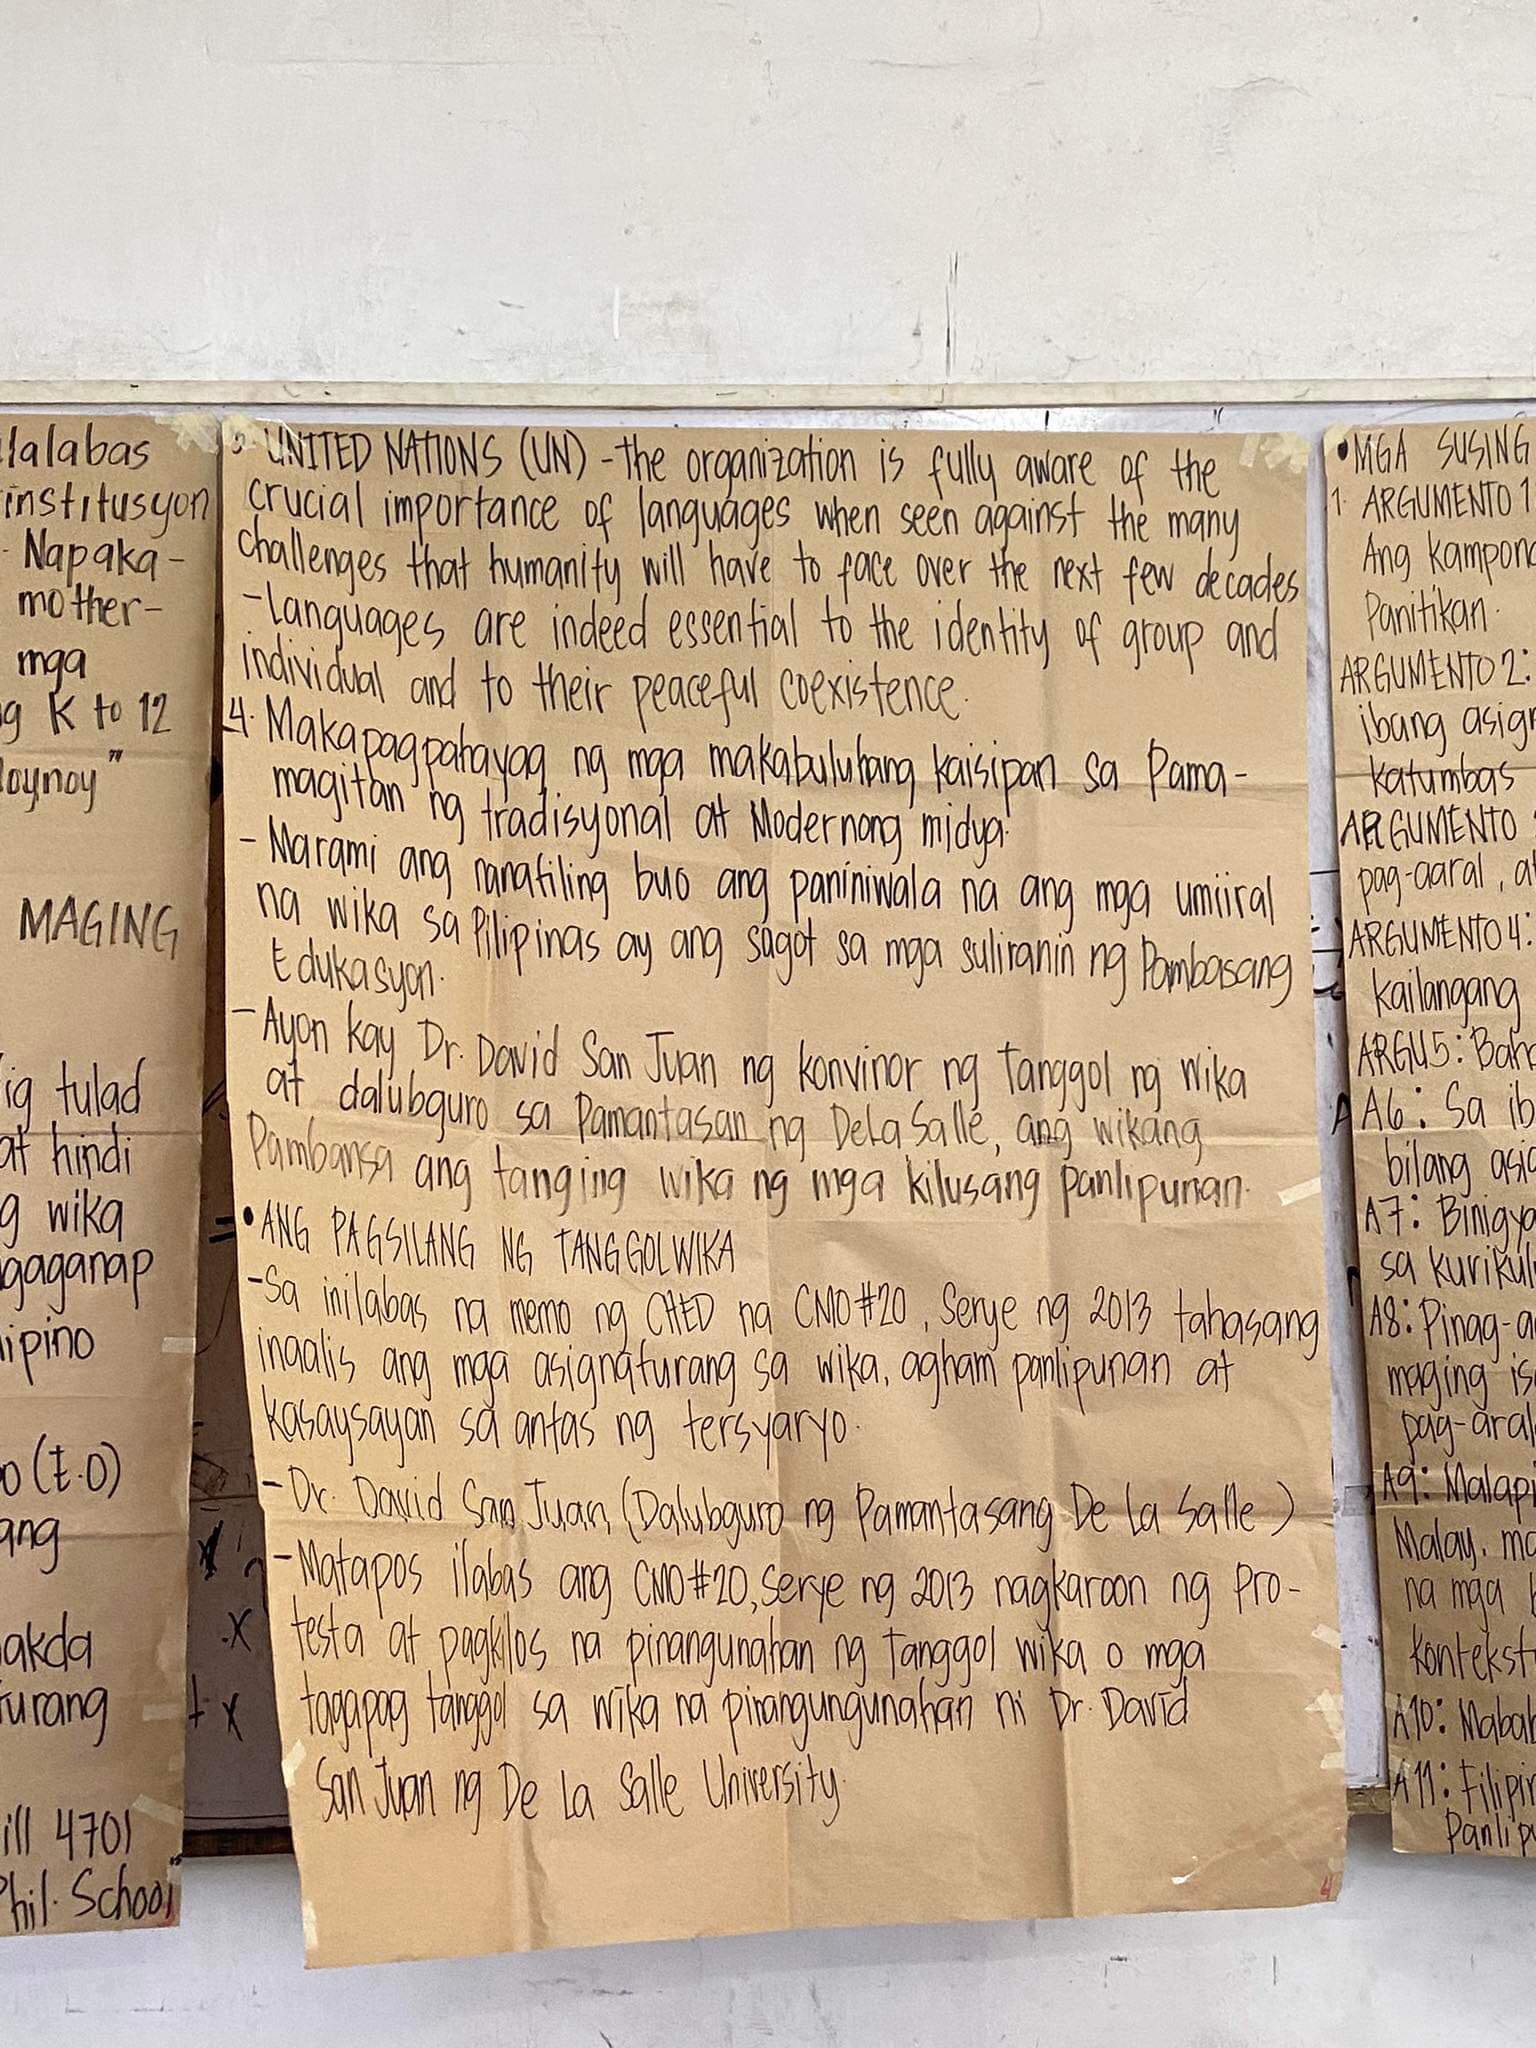 alalabas
institusyon
Napaka-
mother-
mga
g K to 12
Noynoy"
MAGING
ig tulad
at hindi
g wika
gaganap
lipino
(E.O)
ang
akda
turang
ill 4701
Phil. School
3. UNITED NATIONS (UN) - the organization is fully aware of the
crucial importance of languages when seen against the many
challenges that humanity will have to face over the next few decades
- Languages are indeed essential to the identity of group and
individual and to their peaceful coexistence.
4. Makapagpahayag ng mga makabuluhang kaisipan sa Pama-
magitan ng tradisyonal at Modernong midya.
- Marami ang nanatiling buo ang paniniwala na ang mga umiiral
na wika sa Pilipinas ay ang sagot sa mga suliranin ng Pambasang
Edukasyon.
- Ayon kay Dr. David San Juan ng konvinor ng tanggol ng wika
at dalubguro sa Pamantasan ng DeLa Salle, ang wikang
Pambansa ang tanging wika ng mga kilusang panlipunan.
• ANG PAGSILANG NG TANGGOL WIKA
- Sa inilabas na memo ng CHED na CMO #20, Serye ng 2013 tahasang
inaalis ang mga asignaturang sa wika, agham panlipunan at
kasaysayan sa antas ng tersyaryo.
- Dr. David San Juan (Dalubguro ng Pamantasang De La Salle)
- Matapos ilabas ang CMO #20, Serye ng 2013 nagkaroon ng pro-
testa at pagkilos na pinangunahan ng tanggol wika o mga
tagapag tanggol sa wika na pinangungunahan ni Dr. David
San Juan ng De La Salle University.
4
• MGA SUSING
1. ARGUMENTO 1
Ang kampon
Panitikan.
ARGUMENTO 2:
ibang asign
katumbas
ARGUMENTO
pag-aaral, at
ARGUMENTO 4:
kailangang
ARGU 5: Baha
A6: Sa ib
bilang asig
A7: Binigya
sa kurikulu
A8: Pinag-a
maging is
pag-aral
A9: Malapi
Malay, ma
na mga
kontekst
A10: Mabab
A11: Filipin
Panlipu